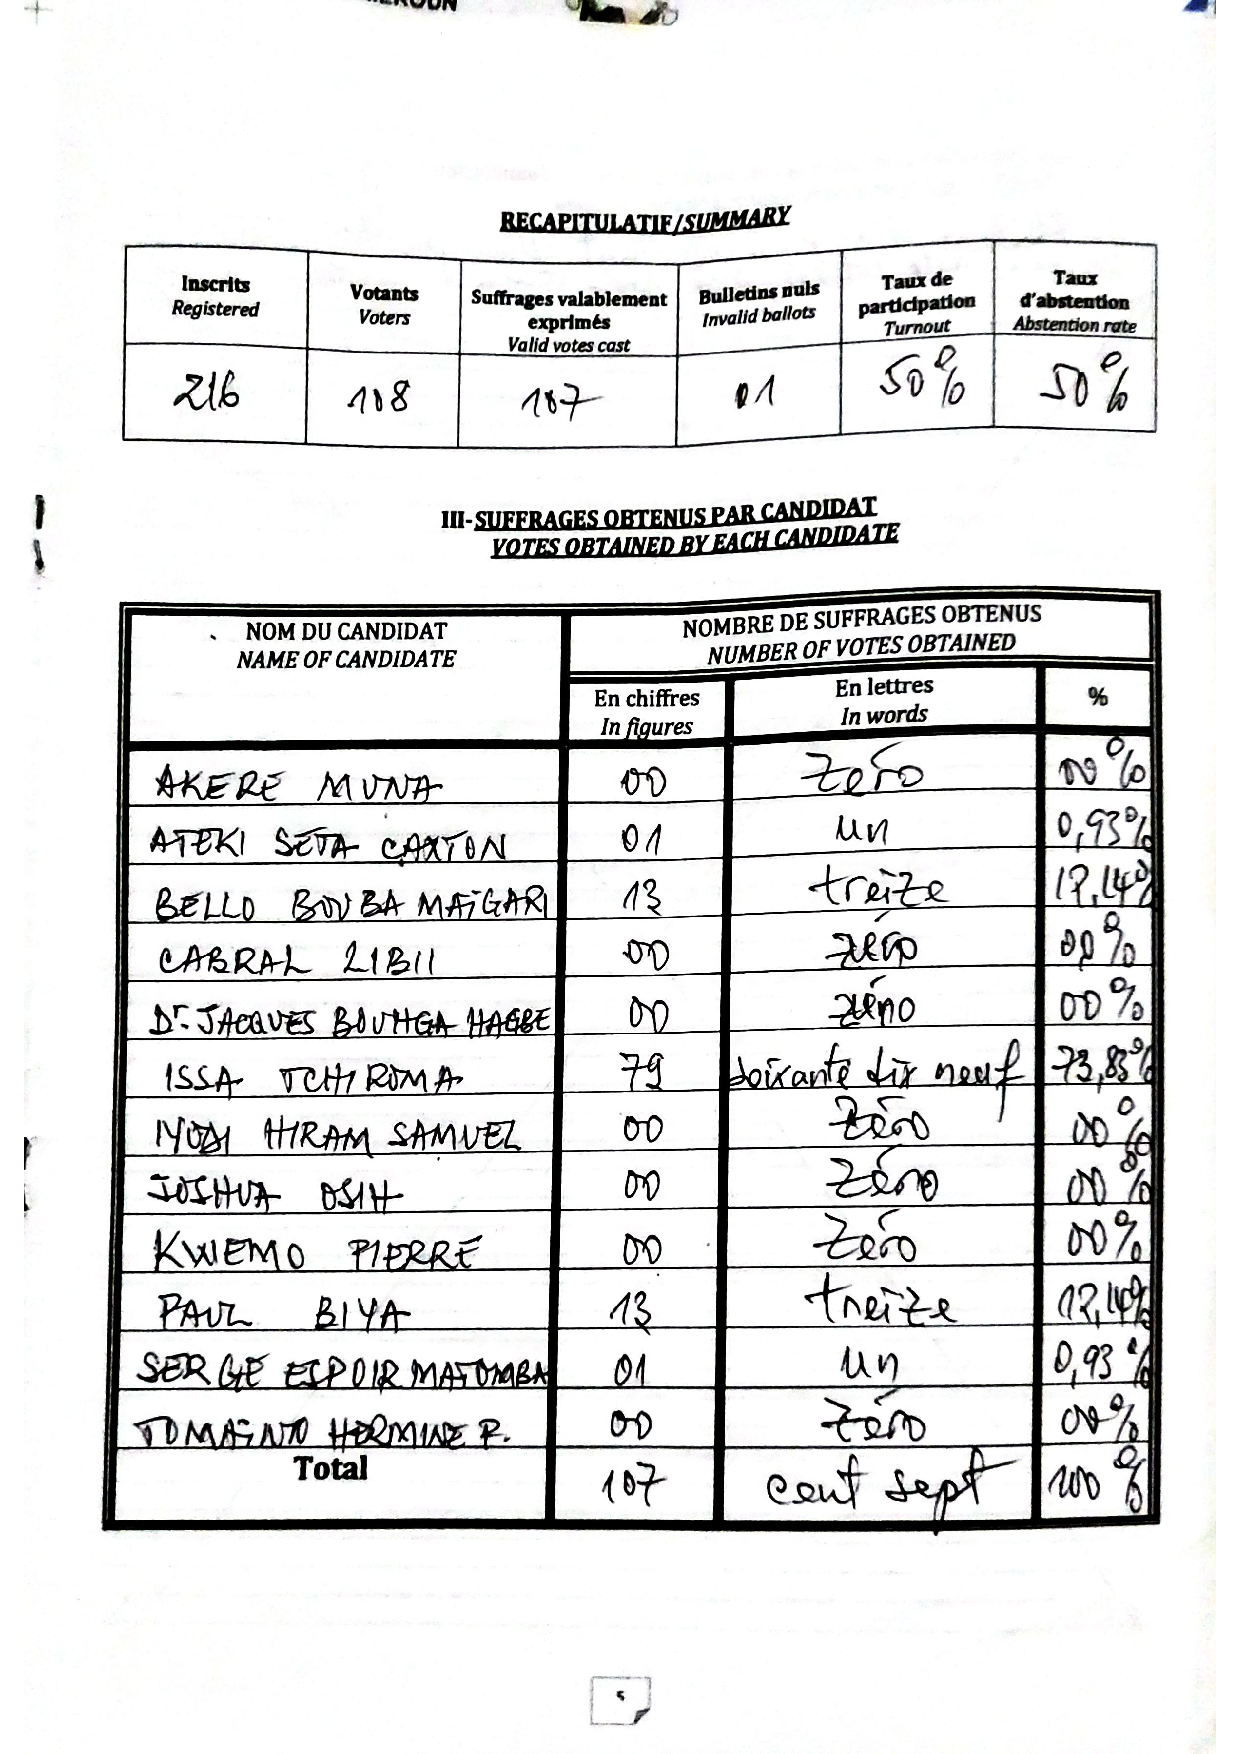 RECAPITULATIF/SUMMARY
Inscrits
Registered
Votants
Voters
Suffrages valablement
exprimés
Valid votes cast
Bulletins nuls
Invalid ballots
Taux de
participation
Turnout
Taux
d'abstention
Abstention rate
216
108
107
01
50%
50%
III-SUFFRAGES OBTENUS PAR CANDIDAT
VOTES OBTAINED BY EACH CANDIDATE
NOM DU CANDIDAT
NAME OF CANDIDATE
NOMBRE DE SUFFRAGES OBTENUS
NUMBER OF VOTES OBTAINED
En chiffres
In figures
En lettres
In words
%
AKERE MUNA 00 Zéro 00%
ATEKI SETA CAXTON 01 un 0,93%
BELLO BOUBA MAÏGARI 13 treize 12,14%
CABRAL LIBII 00 zéro 00%
Dr. JACQUES BOUHGA HAGBE 00 zéro 00%
ISSA TCHIROMA 79 soixante dix neuf 73,83%
IYODI HIRAM SAMUEL 00 Zéro 00%
JOSHUA OSIH 00 Zéro 00%
KWEMO PIERRE 00 Zéro 00%
PAUL BIYA 13 treize 12,14%
SERGE ESPOIR MATOMBA 01 un 0,93%
TOMAÏNO HERMINE P. 00 Zéro 00%
Total 107 cent sept 100%
5